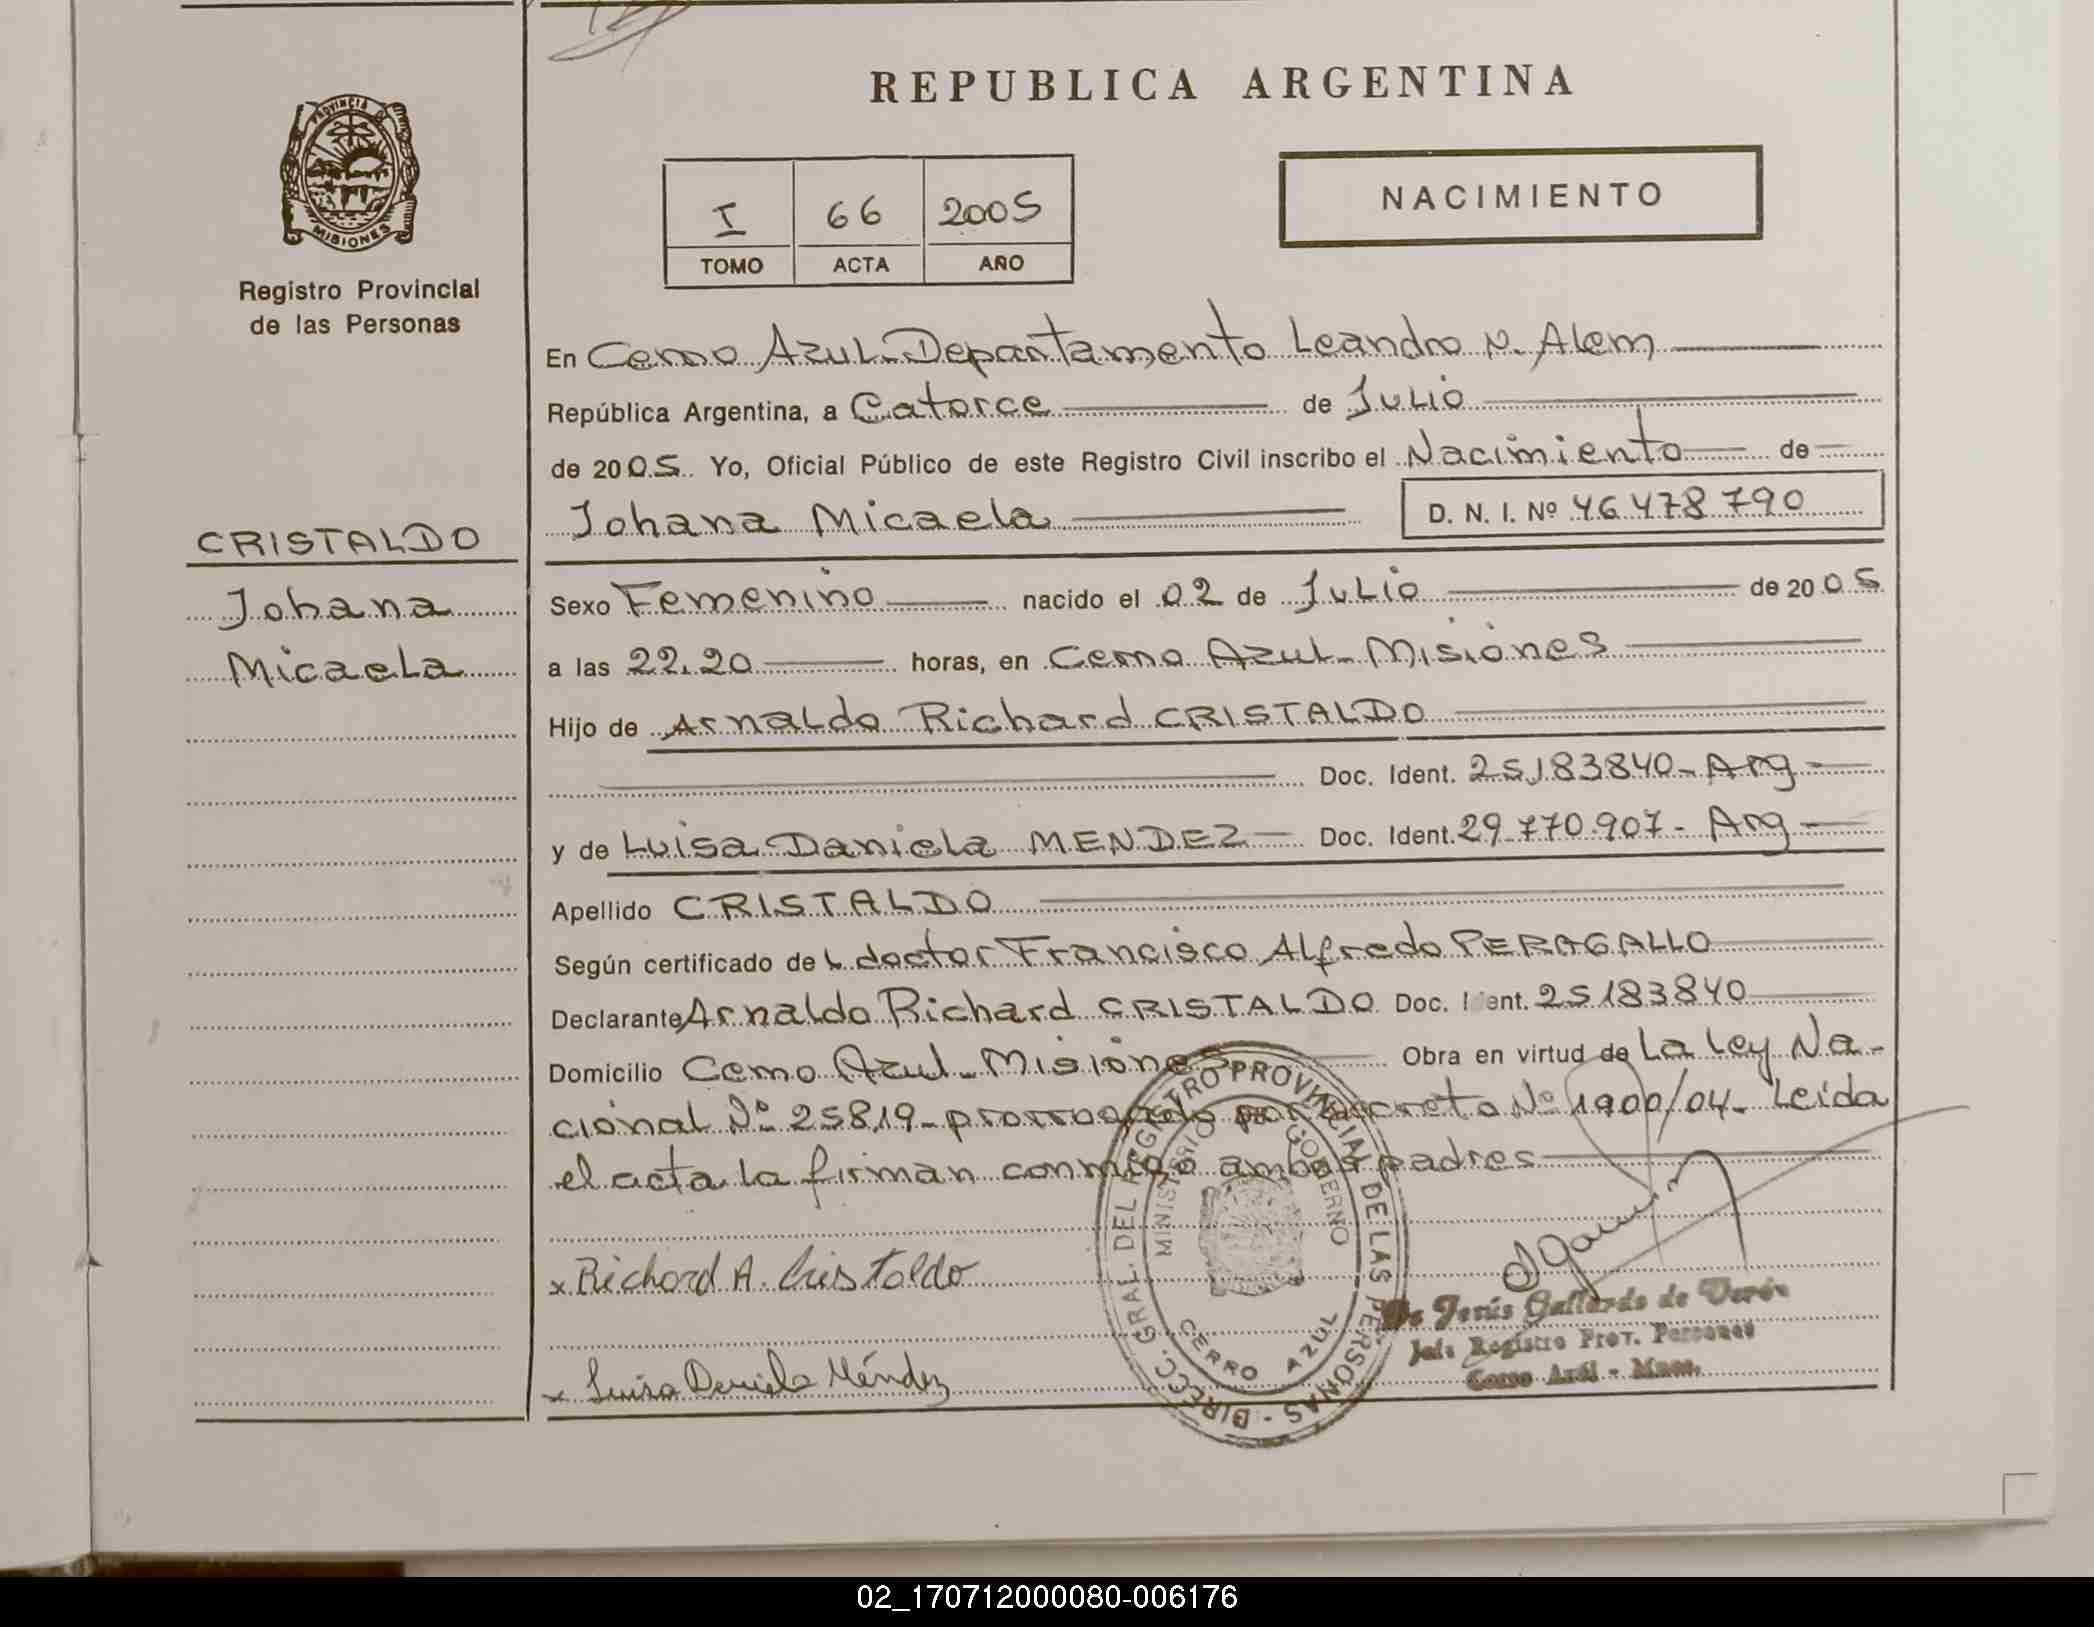 REPUBLICA ARGENTINA
PROVINCIA DE
MISIONES
Registro Provincial
de las Personas
I 66 2005
TOMO ACTA AÑO
NACIMIENTO
En Cerro Azul-Departamento Leandro N. Alem
República Argentina, a Catorce de Julio
de 2005. Yo, Oficial Público de este Registro Civil inscribo el Nacimiento de
Johana Micaela D. N. I. Nº 46478790
CRISTALDO
Johana
Micaela
Sexo Femenino nacido el 02 de Julio de 2005
a las 22.20 horas, en Cerro Azul-Misiones
Hijo de Arnaldo Richard CRISTALDO
Doc. Ident. 25183840-Arg-
y de Luisa Daniela MENDEZ Doc. Ident. 29.770.907-Arg-
Apellido CRISTALDO
Según certificado del doctor Francisco Alfredo PERAGALLO
Declarante Arnaldo Richard CRISTALDO Doc. Ident. 25183840
Domicilio Cerro Azul-Misiones Obra en virtud de La Ley Na-
cional Nº 25819-prorrogado por decreto Nº 1900/04-Leida
el acta la firman conmigo ambos padres
x Richard A. Cristaldo
x Luisa Daniela Méndez
DIRECC. GRAL. DEL REGISTRO PROVINCIAL DE LAS PERSONAS -
MINISTERIO DE GOBIERNO
CERRO AZUL
de Jesús Gallardo de Verón
Jefe Registro Prov. Personas
Cerro Azul - Mnes.
02_170712000080-006176